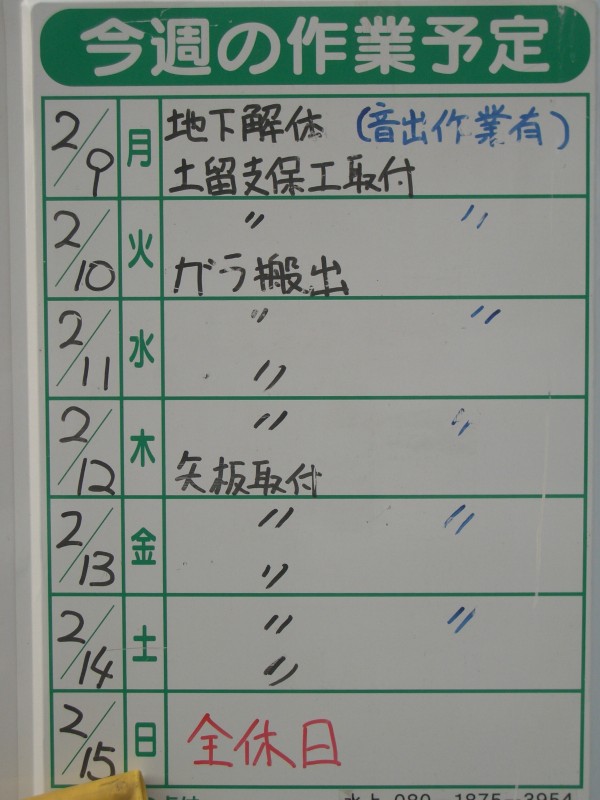 今週の作業予定
2/9 月 地下解体 (音出作業有)
土留支保工取付
2/10 火 〃 〃
ガラ搬出
2/11 水 〃 〃
〃
2/12 木 〃 〃
矢板取付
2/13 金 〃 〃
〃
2/14 土 〃 〃
〃
2/15 日 全休日
1875 3954